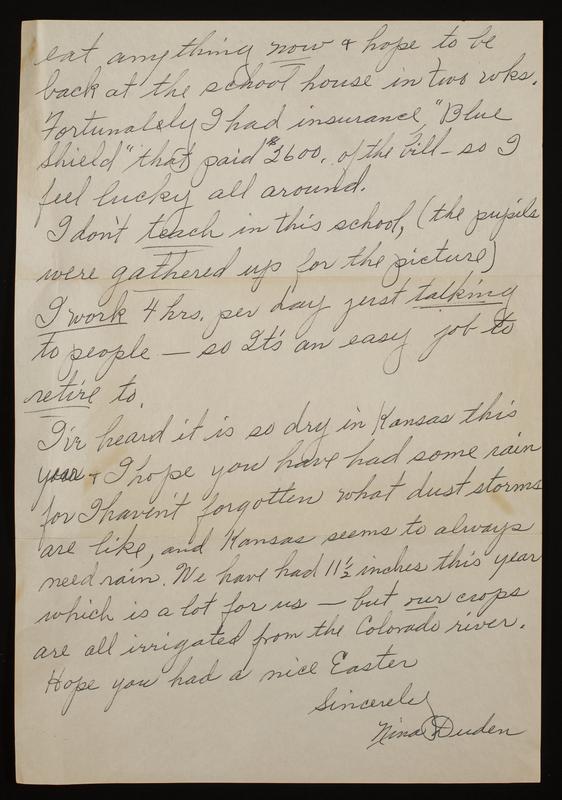 eat anything now & hope to be
back at the school house in two wks.
Fortunately I had insurance, "Blue
Shield" that paid $2600. of the bill - so I
feel lucky all around.
I don't teach in this school, (the pupils
were gathered up for the picture)
I work 4 hrs. per day just talking
to people - so It's an easy job to
retire to.
I've heard it is so dry in Kansas this
year & I hope you have had some rain
for I haven't forgotten what dust storms
are like, and Kansas seems to always
need rain. We have had 11 1/2 inches this year
which is a lot for us - but our crops
are all irrigated from the Colorado river.
Hope you had a nice Easter
Sincerely
Nina Duden